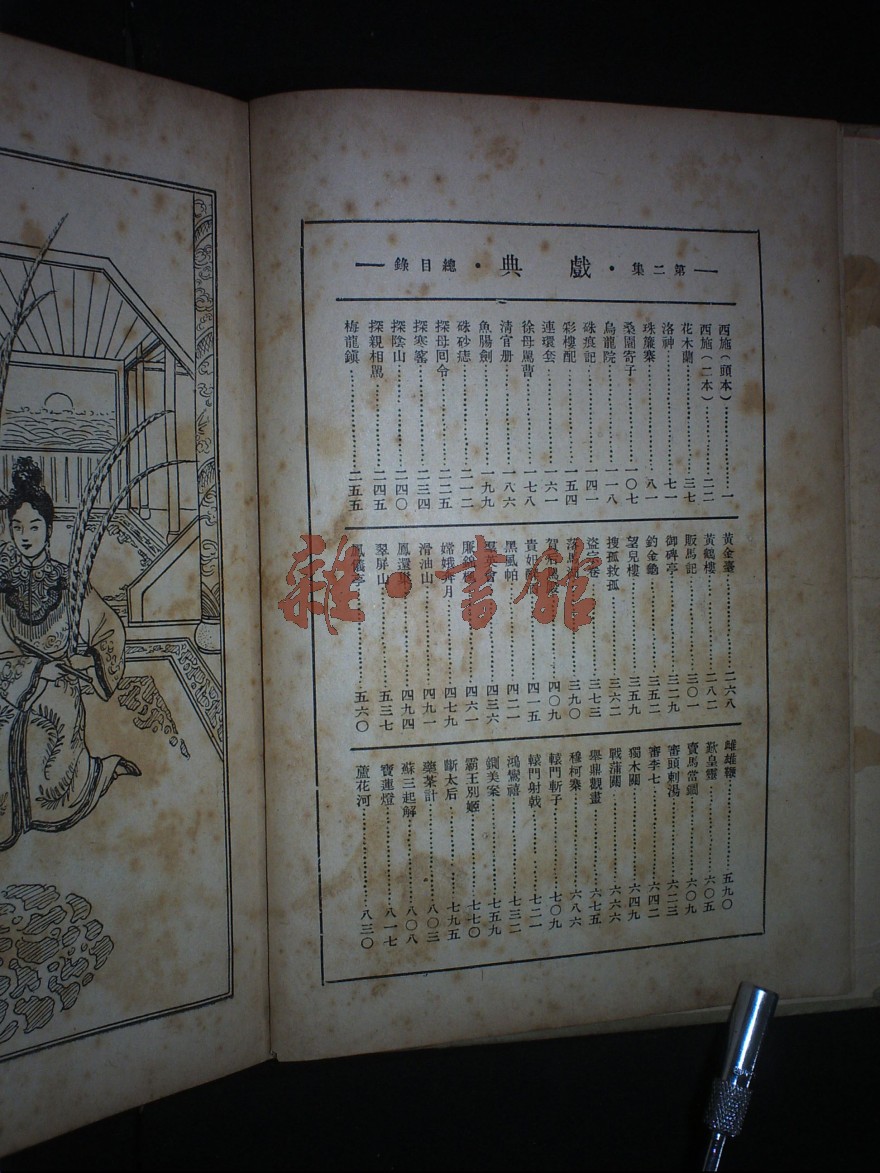 第二集·戲典·總目錄
西施(頭本)……一
西施(二本)……二二
花木蘭……三七
洛神……七一
珠簾寨……八一
桑園寄子……一〇七
烏龍院……一一八
硃痕記……一四一
彩樓配……一五四
連環套……一六一
徐母罵曹……一七八
清官册……一八六
魚腸劍……一九九
硃砂痣……二一二
探母回令……二二二
探寒窰……二三四
探陰山……二四〇
探親相罵……二四五
梅龍鎮……二五五
黃金臺……二六八
黃鶴樓……二八二
販馬記……三〇一
御碑亭……三二九
釣金龜……三五二
望兒樓……三五九
搜孤救孤……三六二
盜宗卷……三七三
落馬……三九〇
賀后罵殿……四〇九
貴妃……四一五
黑風帕……四二一
會……四三六
四六一
嫦娥奔月……四七九
滑油山……四九一
鳳還巢……四九四
翠屏山……五三七
鳳儀亭……五六〇
雌雄鞭……五九〇
歎皇靈……六〇五
賣馬當鐧……六〇九
審頭刺湯……六二三
審李七……六四二
獨木關……六四九
戰蒲關……六六六
舉鼎觀畫……六七五
穆柯寨……六八六
轅門斬子……七〇九
轅門射戟……七二一
鴻鸞禧……七三二
鍘美案……七五九
霸王別姬……七七〇
斷太后……七九五
藥茶計……八〇三
蘇三起解……八〇八
寶蓮燈……八一七
蘆花河……八三〇
雜·書館